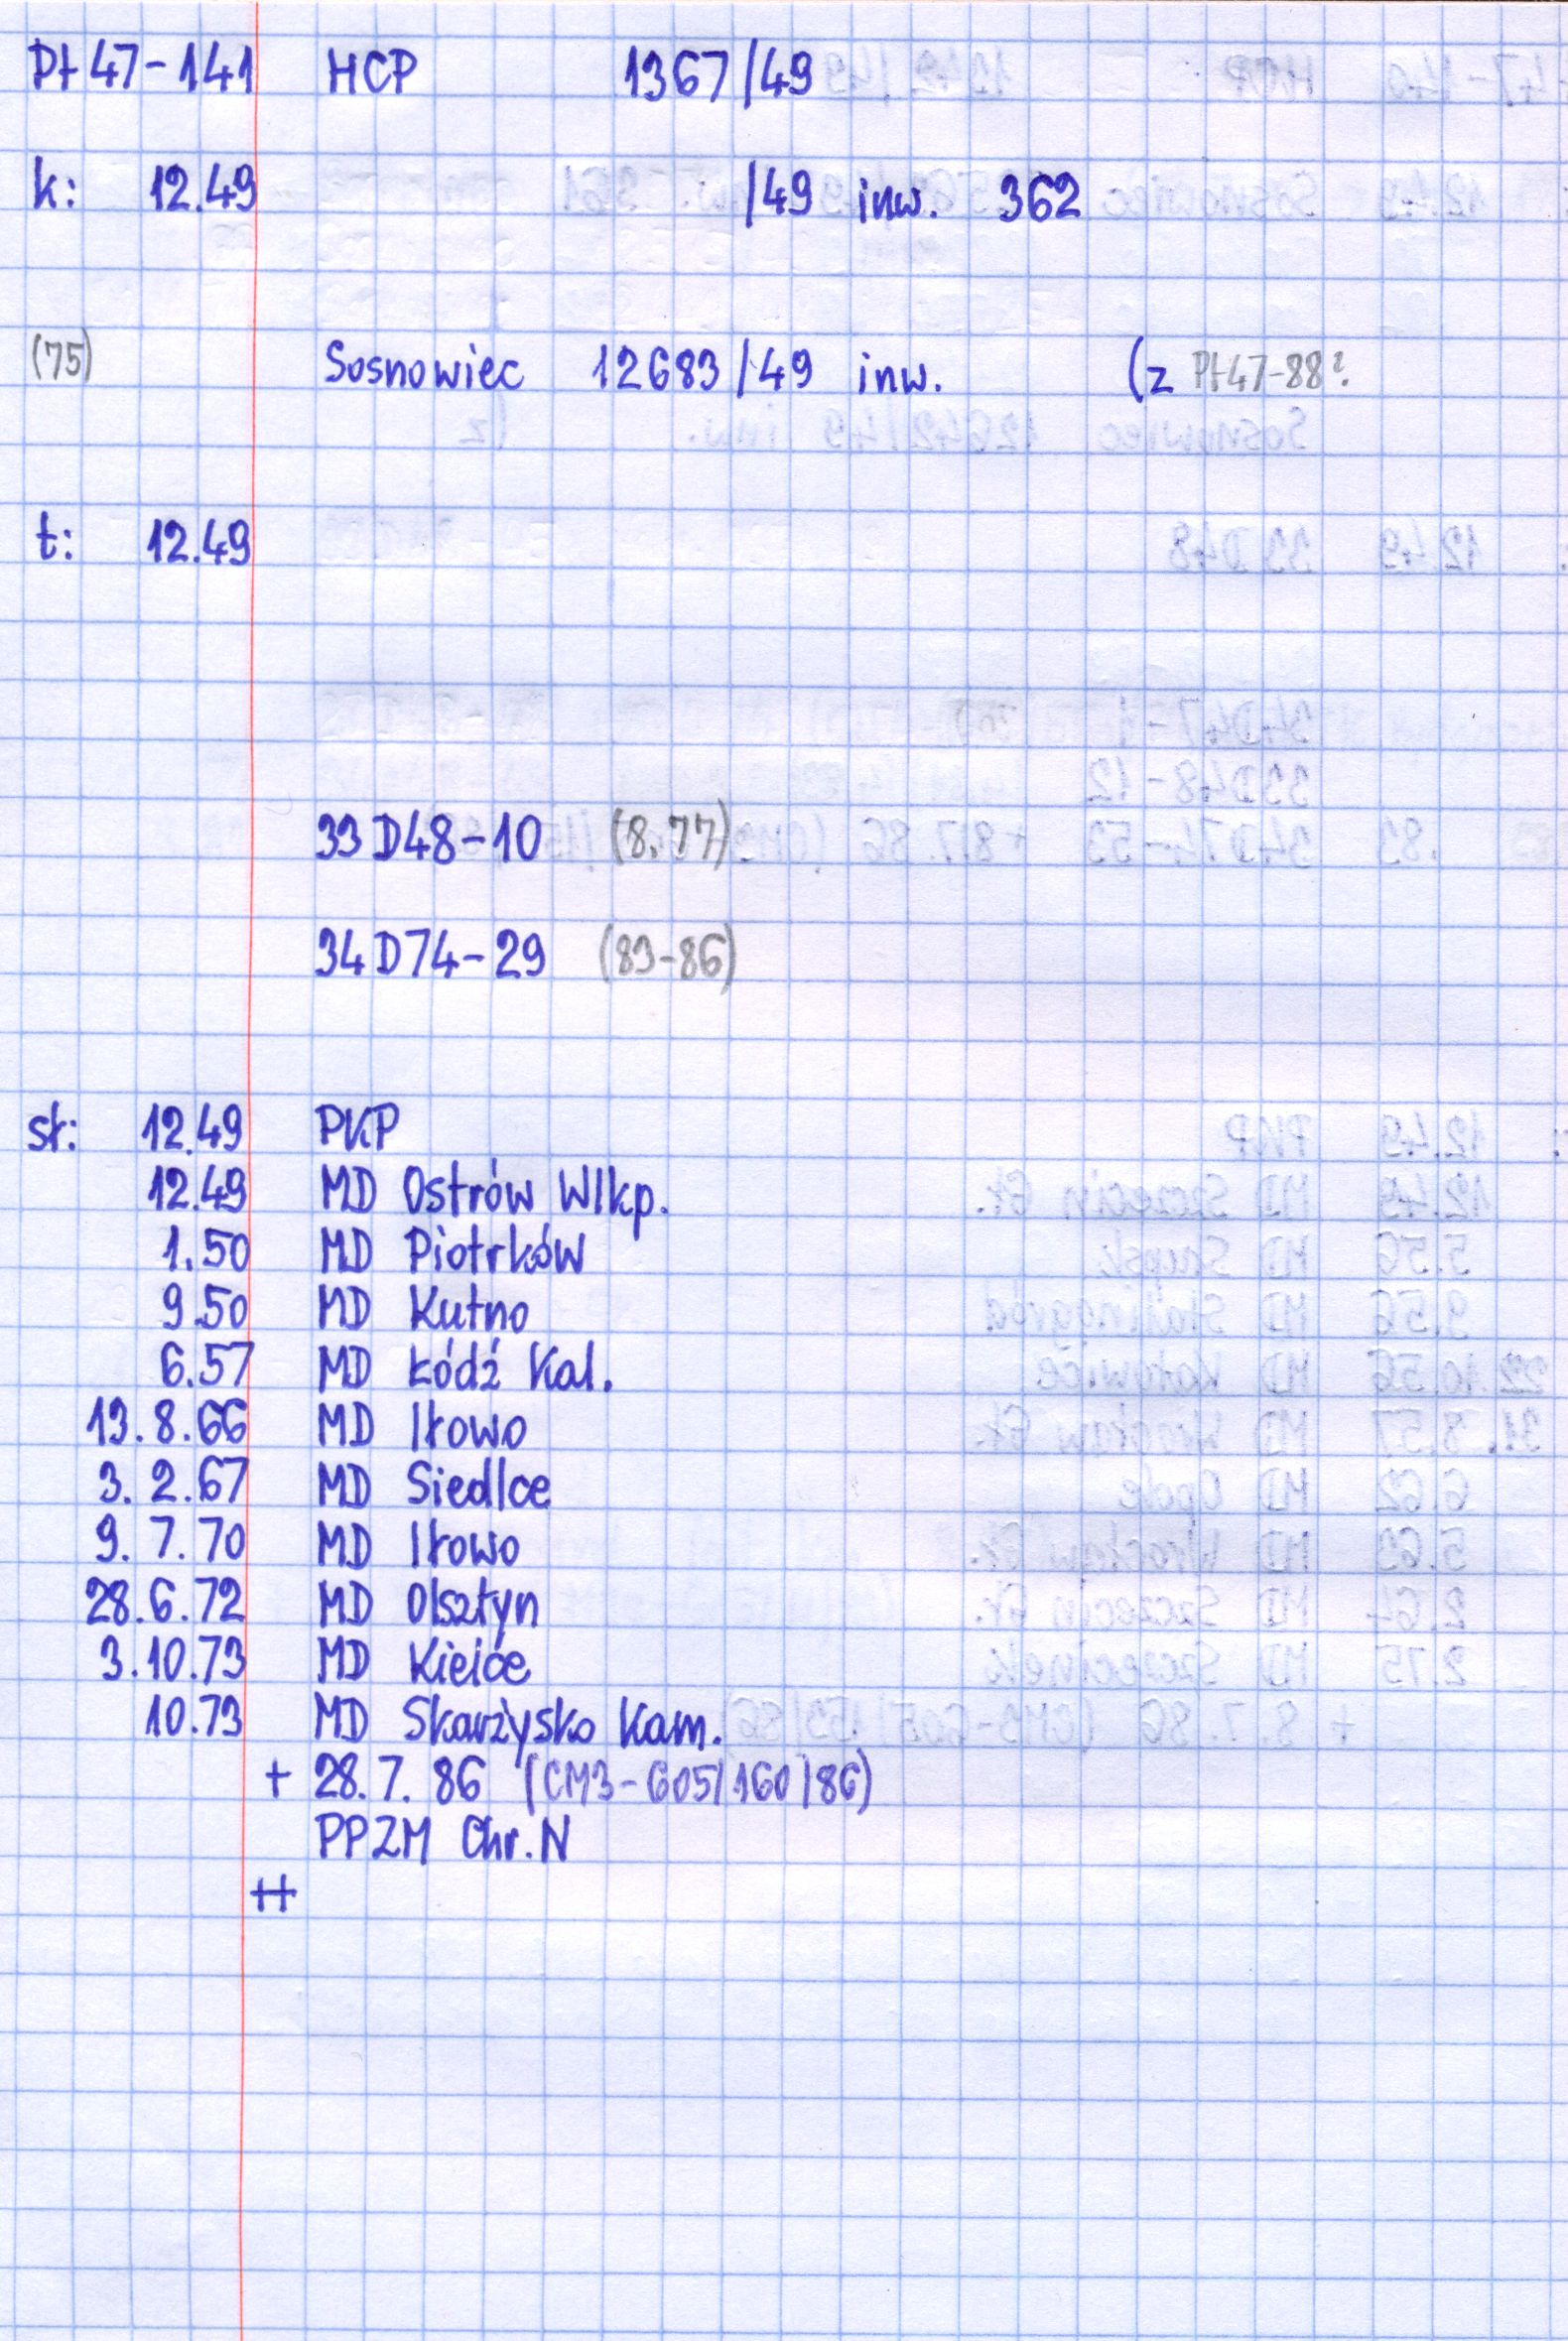 Pt47-141 HCP 1367/49
k: 12.49 /49 inw. 362
(75) Sosnowiec 12683/49 inw. (z Pt47-88?
t: 12.49
33D48-10 (8.77)
34D74-29 (83-86)
st: 12.49 PKP
12.49 MD Ostrów Wlkp.
1.50 MD Piotrków
9.50 MD Kutno
6.57 MD Łódź Kal.
13.8.66 MD Iłowo
3.2.67 MD Siedlce
9.7.70 MD Iłowo
28.6.72 MD Olsztyn
3.10.73 MD Kielce
10.73 MD Skarżysko Kam.
+ 28.7.86 (CM3-605/160/86)
PPZM Chr.N
++